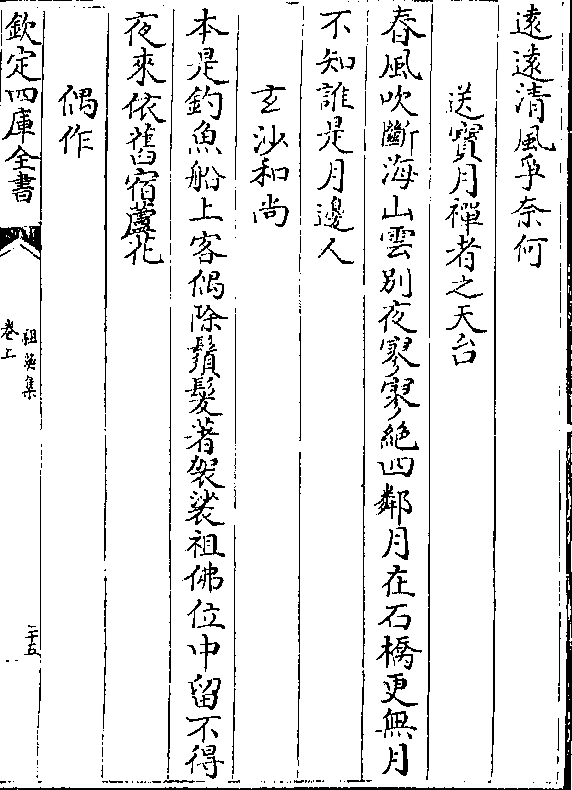 遠遠清風爭奈何
送寶月禪者之天台
春風吹斷海山雲別夜寥寥絶四鄰月在石橋更無月
不知誰是月邊人
玄沙和尚
本是釣魚船上客偶除鬚髮著袈裟祖佛位中留不得
夜來依舊宿蘆花
偶作
欽定四庫全書
祖英集
卷上
二十五